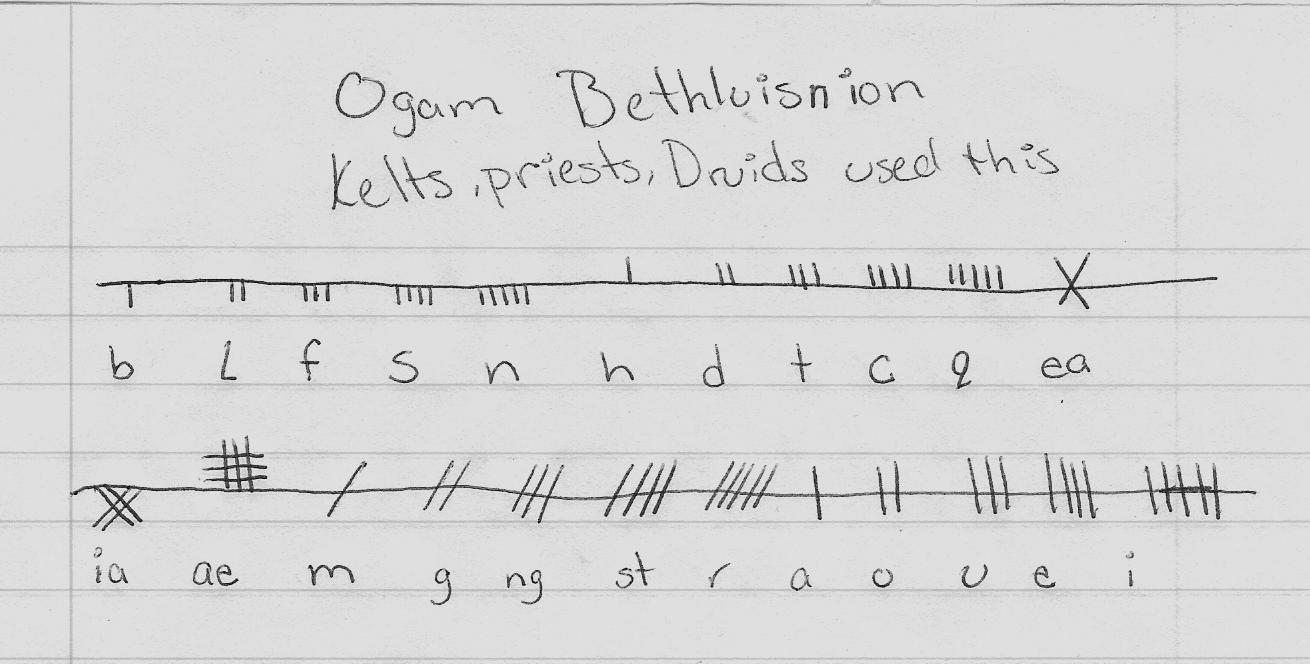 Ogam Bethluisnion
Kelts, priests, Druids used this
b L f s n h d t c q ea
ia ae m g ng st r a o u e i